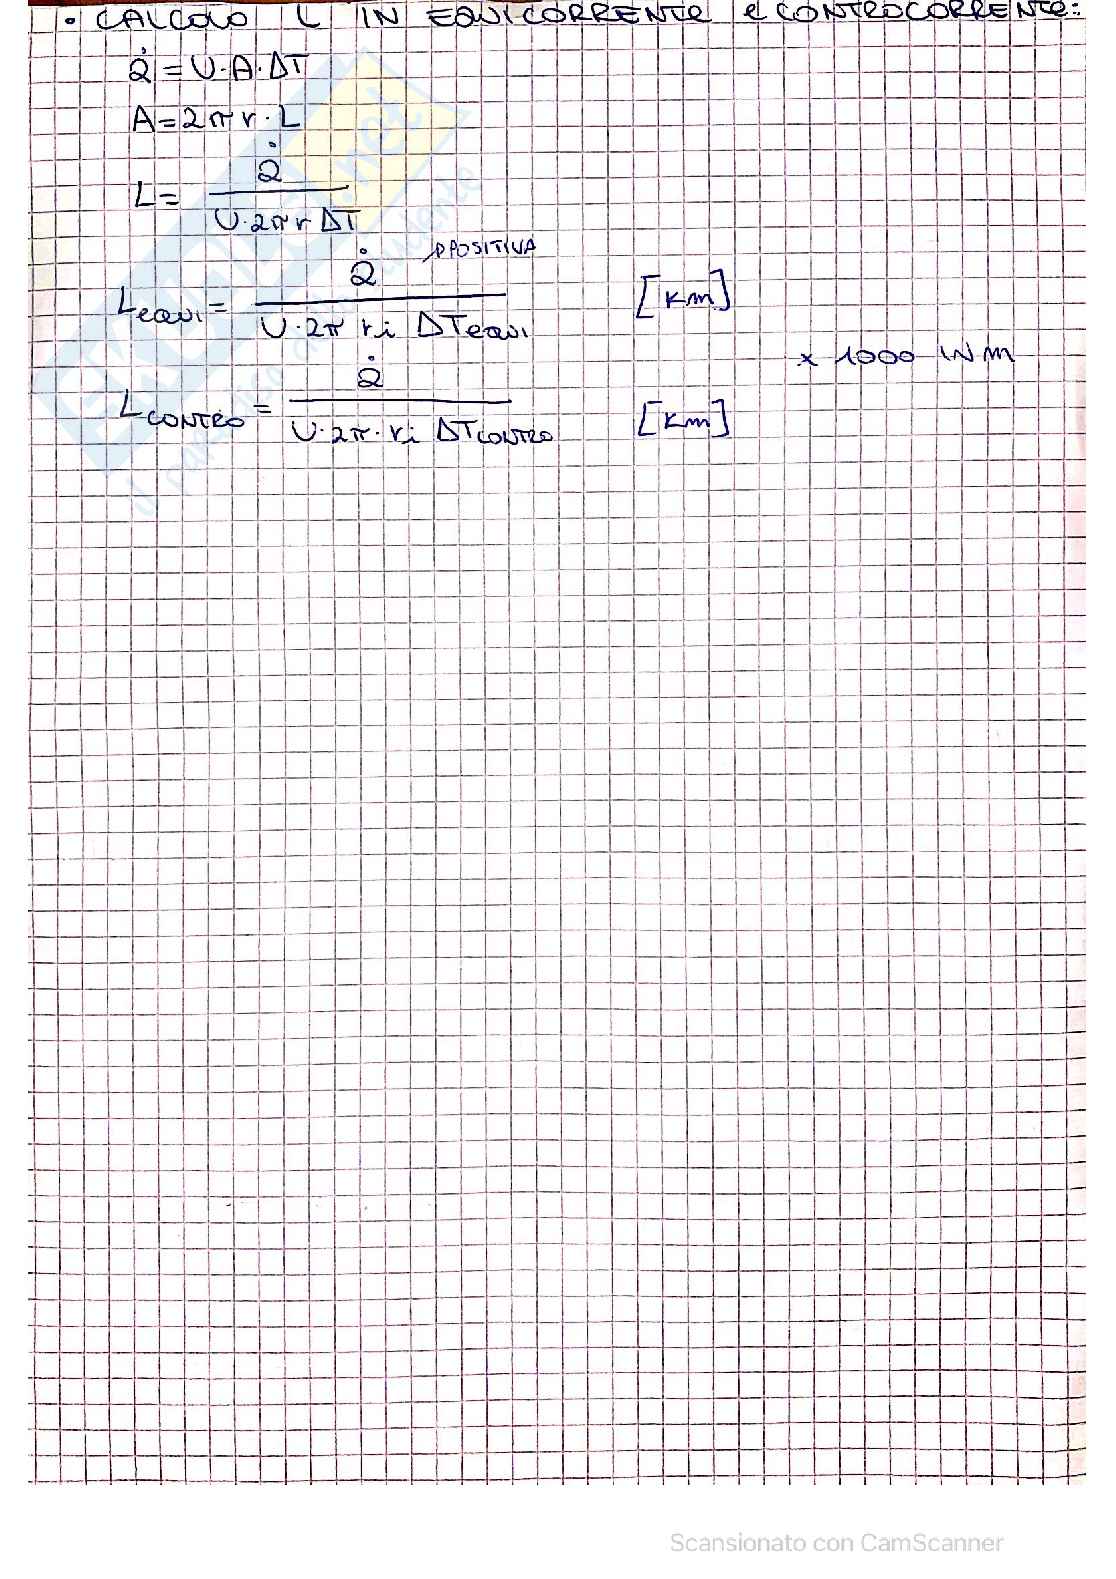 • CALCOLO L IN EQUICORRENTE e CONTROCORRENTE:
Q̇ = U·A·ΔT
A = 2πr·L
L = Q̇ / U·2πr ΔT
POSITIVA
L EQUI = Q̇ / U·2π ri ΔT EQUI [km]
x 1000 IN m
L CONTRO = Q̇ / U·2π·ri ΔT CONTRO [km]
Scansionato con CamScanner